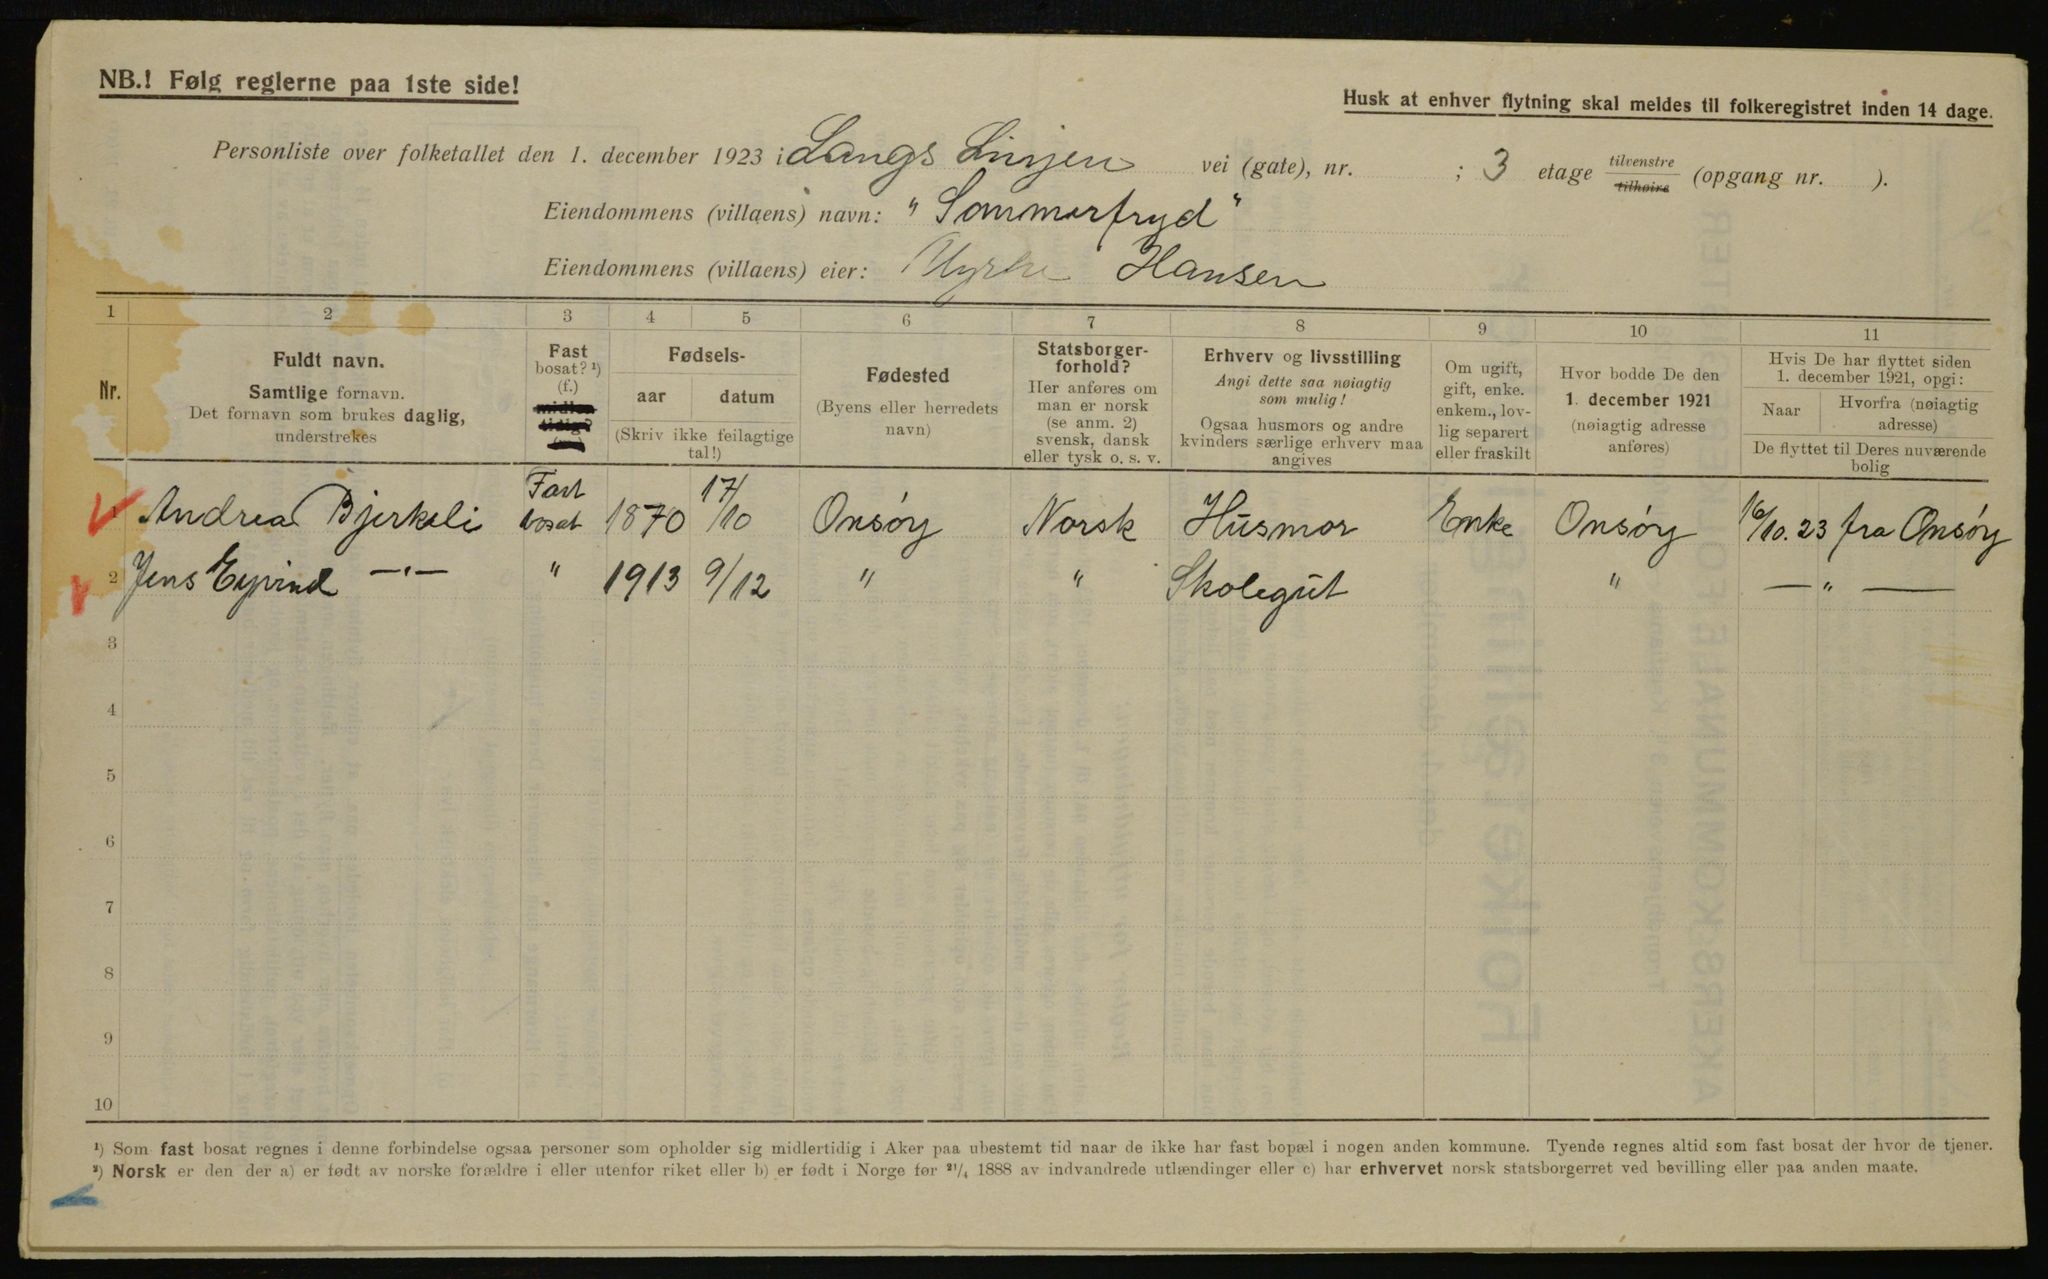 NB.! Følg reglerne paa 1ste side!
Husk at enhver flytning skal meldes til folkeregistret inden 14 dage.
Personliste over folketallet den 1. december 1923 i Langs Linjen vei (gate), nr. ; 3 etage tilvenstre tilhøire (opgang nr. ).
Eiendommens (villaens) navn: "Sommerfryd"
Eiendommens (villaens) eier: Hansen
1 2 3 4 5 6 7 8 9 10 11
Nr.
Fuldt navn.
Samtlige fornavn.
Det fornavn som brukes daglig,
understrekes
Fast
bosat? ¹)
(f.)
midler-
tidig?
(m.)
Fødsels-
aar datum
(Skriv ikke feilagtige
tal!)
Fødested
(Byens eller herredets
navn)
Statsborger-
forhold?
Her anføres om
man er norsk
(se anm. 2)
svensk, dansk
eller tysk o. s. v.
Erhverv og livsstilling
Angi dette saa nøiagtig
som mulig!
Ogsaa husmors og andre
kvinders særlige erhverv maa
angives
Om ugift,
gift, enke.
enkem., lov-
lig separert
eller fraskilt
Hvor bodde De den
1. december 1921
(nøiagtig adresse
anføres)
Hvis De har flyttet siden
1. december 1921, opgi:
Naar
Hvorfra (nøiagtig
adresse)
De flyttet til Deres nuværende
bolig
1 Andrea Bjerkeli Fast bosat 1870 17/10 Onsøy Norsk Husmor Enke Onsøy 16/10.23 fra Onsøy
2 Jens Eyvind —"— " 1913 9/12 " " Skolegut " — " —
3
4
5
6
7
8
9
10
¹) Som fast bosat regnes i denne forbindelse ogsaa personer som opholder sig midlertidig i Aker paa ubestemt tid naar de ikke har fast bopæl i nogen anden kommune. Tyende regnes altid som fast bosat der hvor de tjener.
²) Norsk er den der a) er født av norske forældre i eller utenfor riket eller b) er født i Norge før ²¹/₄ 1888 av indvandrede utlændinger eller c) har erhvervet norsk statsborgerret ved bevilling eller paa anden maate.